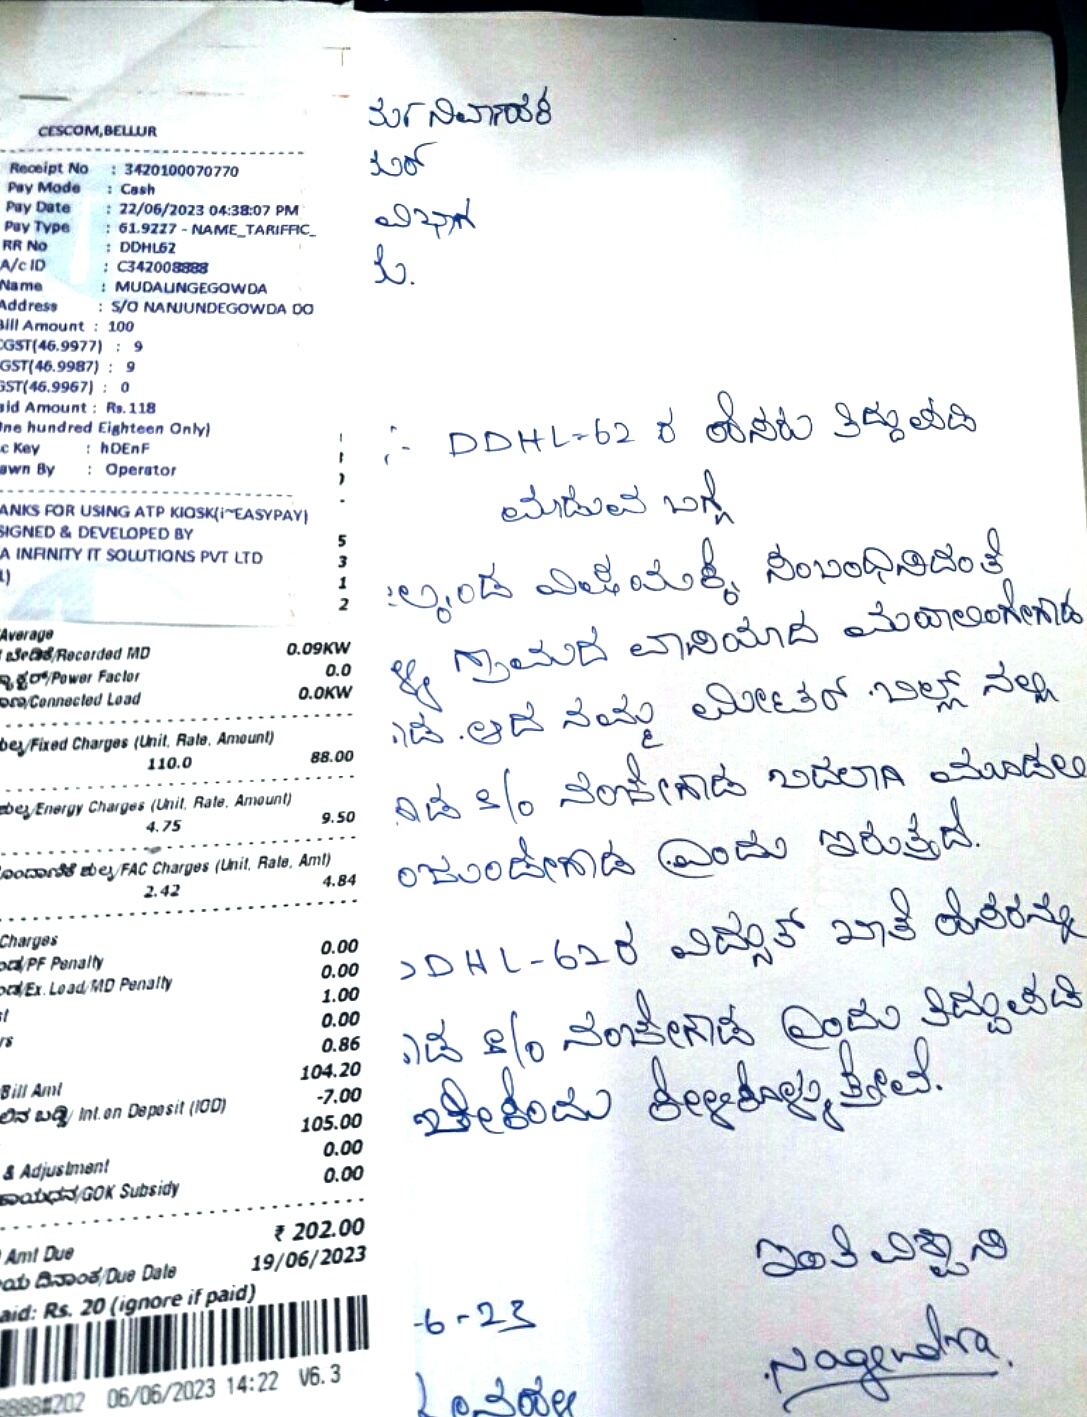 CESCOM,BELLUR
Receipt No : 3420100070770
Pay Mode : Cash
Pay Date : 22/06/2023 04:38:07 PM
Pay Type : 61.9227 - NAME_TARIFFIC_
RR No : DDHL62
A/c ID : C342008888
Name : MUDALINGEGOWDA
Address : S/O NANJUNDEGOWDA DO
Bill Amount : 100
CGST(46.9977) : 9
GST(46.9987) : 9
GST(46.9967) : 0
aid Amount : Rs.118
One hundred Eighteen Only)
c Key : hDEnF
awn By : Operator
ANKS FOR USING ATP KIOSK(i~EASYPAY)
SIGNED & DEVELOPED BY
A INFINITY IT SOLUTIONS PVT LTD
5
3
1
2
/Average
ಬೇಡಿಕೆ/Recorded MD 0.09KW
/Power Factor 0.0
/Connected Load 0.0KW
/Fixed Charges (Unit, Rate, Amount)
110.0 88.00
/Energy Charges (Unit, Rate, Amount)
4.75 9.50
ಹೊಂದಾಣಿಕೆ ಶುಲ್ಕ/FAC Charges (Unit, Rate, Amt)
2.42 4.84
Charges 0.00
/PF Penalty 0.00
/Ex. Load/MD Penalty 1.00
0.00
0.86
Bill Amt 104.20
ಬಡ್ಡಿ/ Int.on Deposit (IOD) -7.00
105.00
& Adjustment 0.00
ಸಹಾಯಧನ/GOK Subsidy 0.00
Amt Due ₹ 202.00
ದಿನಾಂಕ/Due Date 19/06/2023
aid: Rs. 20 (ignore if paid)
8888#202 06/06/2023 14:22 V6.3
ರ್ಯನಿರ್ವಾಹಕ
ವಿಭಾಗ
:- DDHL-62 ರ ಹೆಸರು ತಿದ್ದುಪಡಿ
ಮಾಡುವ ಬಗ್ಗೆ
ಲ್ಕಂಡ ವಿಷಯಕ್ಕೆ ಸಂಬಂಧಿಸಿದಂತೆ
ಳ್ಳಿ ಗ್ರಾಮದ ವಾಸಿಯಾದ ಮುದಾಲಿಂಗೇಗೌಡ
ಆದ ನಮ್ಮ ಮೀಟರ್ ಬಿಲ್ಲ್ ನಲ್ಲಿ
ಗೌಡ S/o ನಂಜೇಗೌಡ ಬದಲಾಗಿ ಮೂಡಲ
ಂಜುಂಡೇಗೌಡ ಎಂದು ಇರುತ್ತದೆ.
DDHL-62 ರ ವಿದ್ಯುತ್ ಖಾತೆ ಹೆಸರನ್ನು
ಗೌಡ S/o ನಂಜೇಗೌಡ ಎಂದು ತಿದ್ದುಪಡಿ
ಬೇಕೆಂದು ಕೇಳಿಕೊಳ್ಳುತ್ತೇವೆ.
ಇಂತಿ ವಿಶ್ವಾಸಿ
-6-23
Nagendra.